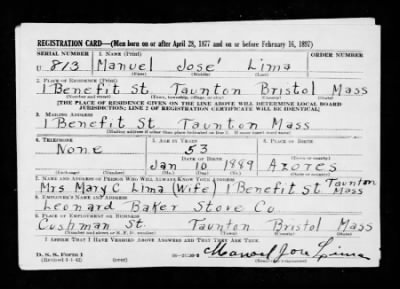 REGISTRATION CARD—(Men born on or after April 28, 1877 and on or before February 16, 1897)
SERIAL NUMBER 1. NAME (Print) ORDER NUMBER
U 813 Manuel José Lima
(First) (Middle) (Last)
2. PLACE OF RESIDENCE (Print)
1 Benefit St. Taunton Bristol Mass
(Number and street) (Town, township, village, or city) (County) (State)
[THE PLACE OF RESIDENCE GIVEN ON THE LINE ABOVE WILL DETERMINE LOCAL BOARD
JURISDICTION; LINE 2 OF REGISTRATION CERTIFICATE WILL BE IDENTICAL]
3. MAILING ADDRESS
1 Benefit St. Taunton Mass
[Mailing address if other than place indicated on line 2. If same insert word same]
4. TELEPHONE 5. AGE IN YEARS 6. PLACE OF BIRTH
None 53
DATE OF BIRTH
Jan 10 1889 Azores
(Mo.) (Day) (Yr.)
7. NAME AND ADDRESS OF PERSON WHO WILL ALWAYS KNOW YOUR ADDRESS
Mrs Mary C Lima (Wife) 1 Benefit St Taunton Mass
8. EMPLOYER'S NAME AND ADDRESS
Leonard Baker Stove Co
9. PLACE OF EMPLOYMENT OR BUSINESS
Cushman St. Taunton Bristol Mass
(Number and street or R. F. D. number) (Town) (County) (State)
I AFFIRM THAT I HAVE VERIFIED ABOVE ANSWERS AND THAT THEY ARE TRUE.
D. S. S. Form 1
(Revised 4-1-42)
Manuel José Lima